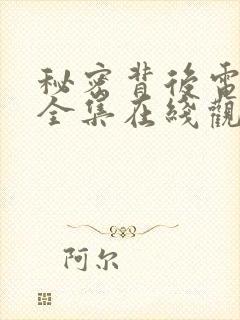 秘密背後電
全集在綫觀
阿尔